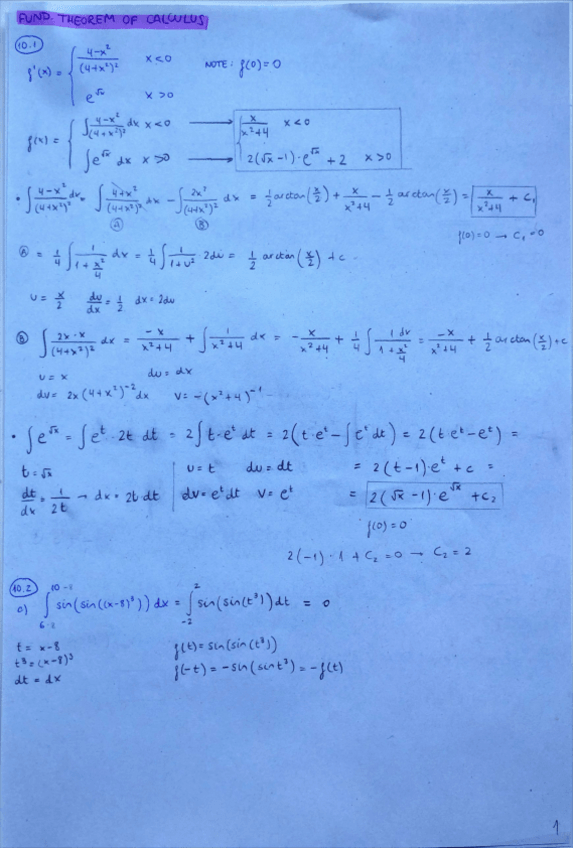 FUND. THEOREM OF CALCULUS
10.1
f'(x) = { (4-x²)/(4+x²)² x<0 NOTE: f(0)=0
e^√x x>0
f(x) = { ∫ (4-x²)/(4+x²)² dx x<0 → { x/(x²+4) x<0
∫ e^√x dx x>0 → 2(√x-1)·e^√x + 2 x>0
• ∫ (4-x²)/(4+x²)² dx = ∫ (4+x²)/(4+x²)² dx - ∫ 2x²/(4+x²)² dx = 1/2 arctan(x/2) + x/(x²+4) - 1/2 arctan(x/2) = x/(x²+4) + C₁
Ⓐ Ⓑ
f(0)=0 → C₁=0
Ⓐ = 1/4 ∫ 1/(1+x²/4) dx = 1/4 ∫ 1/(1+u²) 2du = 1/2 arctan(x/2) + c
u = x/2 du/dx = 1/2 dx = 2du
Ⓑ ∫ 2x·x/(4+x²)² dx = -x/(x²+4) + ∫ 1/(x²+4) dx = -x/(x²+4) + 1/4 ∫ 1 dx/(1+x²/4) = -x/(x²+4) + 1/2 arctan(x/2) + c
u = x du = dx
dv = 2x(4+x²)⁻² dx v = -(x²+4)⁻¹
• ∫ e^√x = ∫ e^t · 2t dt = 2∫ t·e^t dt = 2(t·e^t - ∫ e^t dt) = 2(t·e^t - e^t) =
t = √x u = t du = dt = 2(t-1)·e^t + c =
dt/dx = 1/2t → dx = 2t dt dv = e^t dt v = e^t = 2(√x-1)·e^√x + C₂
f(0)=0
2(-1)·1 + C₂ = 0 → C₂ = 2
10.2
∫ sin(sin((x-8)³)) dx = ∫₋₂² sin(sin(t³)) dt = 0
t = x-8 f(t) = sin(sin(t³))
t³ = (x-8)³ f(-t) = -sin(sin t³) = -f(t)
dt = dx
1